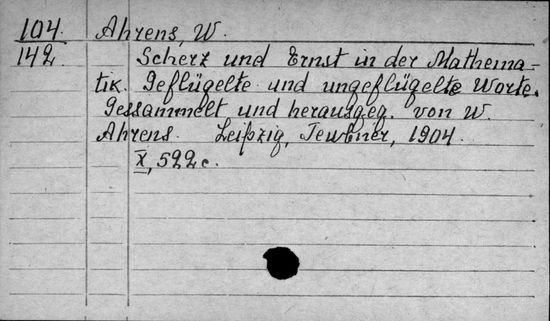 104. Ahrens, W.
142. Scherz und Ernst in der Mathema-
tik. Geflügelte und ungeflügelte Worte.
Gessammelt und herausgeg. von W.
Ahrens. Leipzig, Teubner, 1904.
X, 522 c.